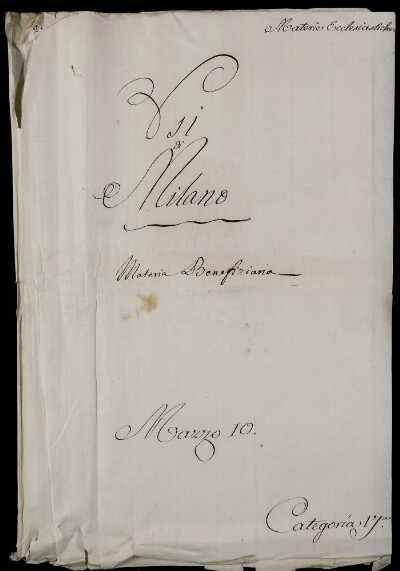 Materie Ecclesiastiche
Usi
di
Milano
Materia Benefiziaria
Mazzo 10.
Categoria 17.ma